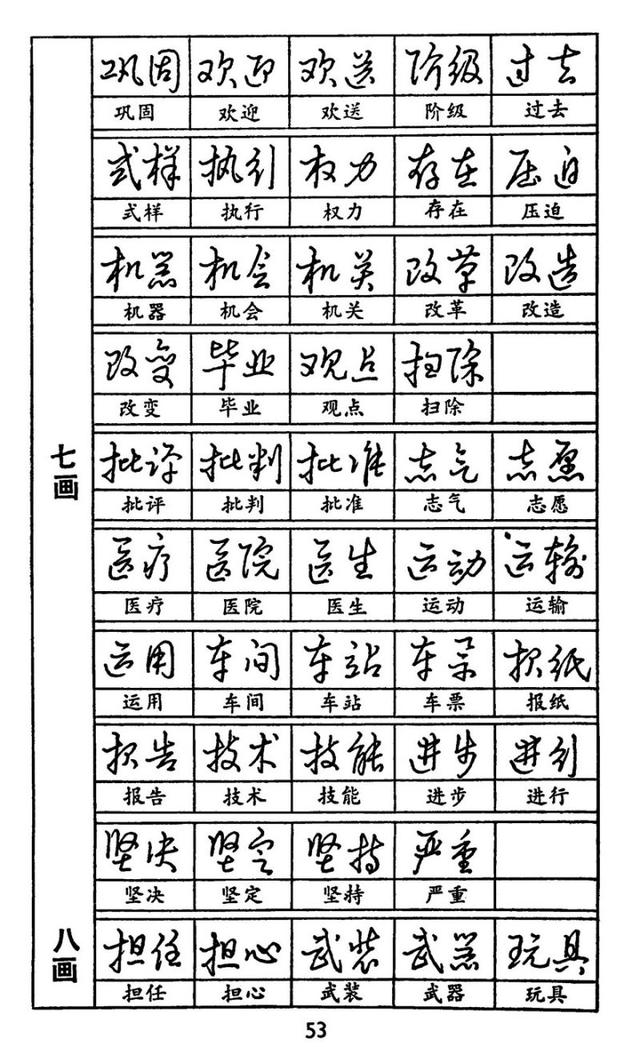 巩固 欢迎 欢送 阶级 过去
巩固 欢迎 欢送 阶级 过去
式样 执行 权力 存在 压迫
式样 执行 权力 存在 压迫
机器 机会 机关 改革 改造
机器 机会 机关 改革 改造
改变 毕业 观点 扫除
改变 毕业 观点 扫除
七画
批评 批判 批准 志气 志愿
批评 批判 批准 志气 志愿
医疗 医院 医生 运动 运输
医疗 医院 医生 运动 运输
运用 车间 车站 车票 报纸
运用 车间 车站 车票 报纸
报告 技术 技能 进步 进行
报告 技术 技能 进步 进行
坚决 坚定 坚持 严重
坚决 坚定 坚持 严重
八画
担任 担心 武装 武器 玩具
担任 担心 武装 武器 玩具
53